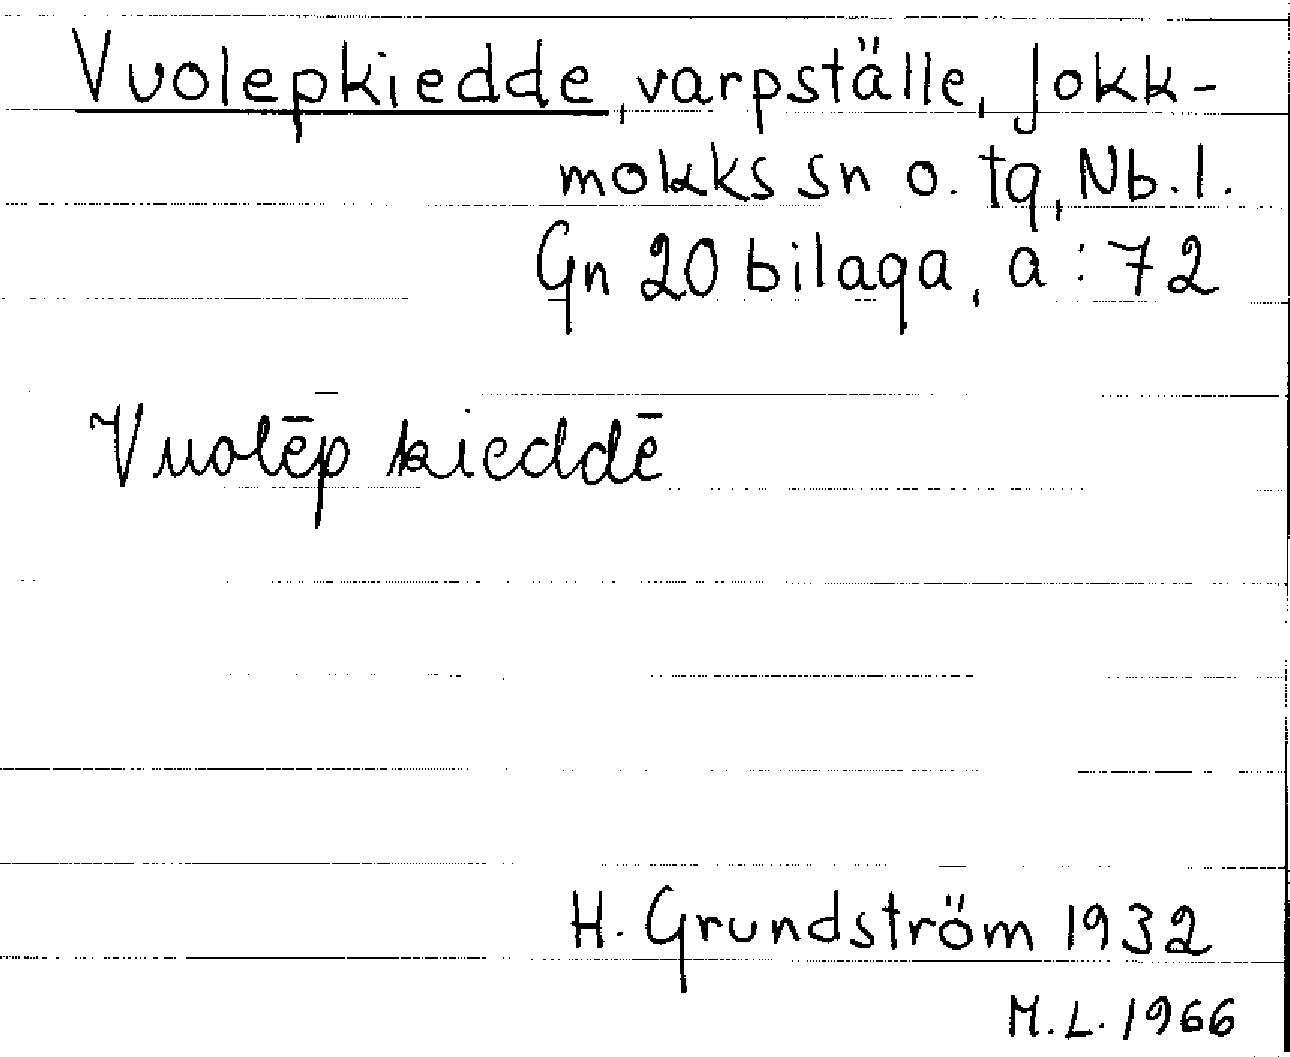 Vuolepkiedde, varpställe, Jokk-
mokks sn o. tg, Nb. l.
Gn 20 bilaga, a : 72
Vuolēp kieddē
H. Grundström 1932
M. L. 1966